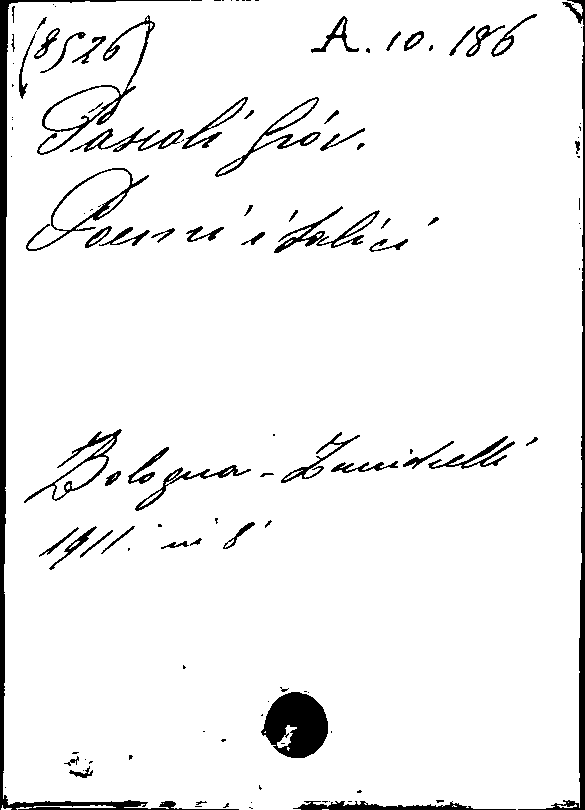 (8526) A. 10. 186
Pascoli Giov.
Poemi italici
Bologna - Zanichelli
1911. in 8°